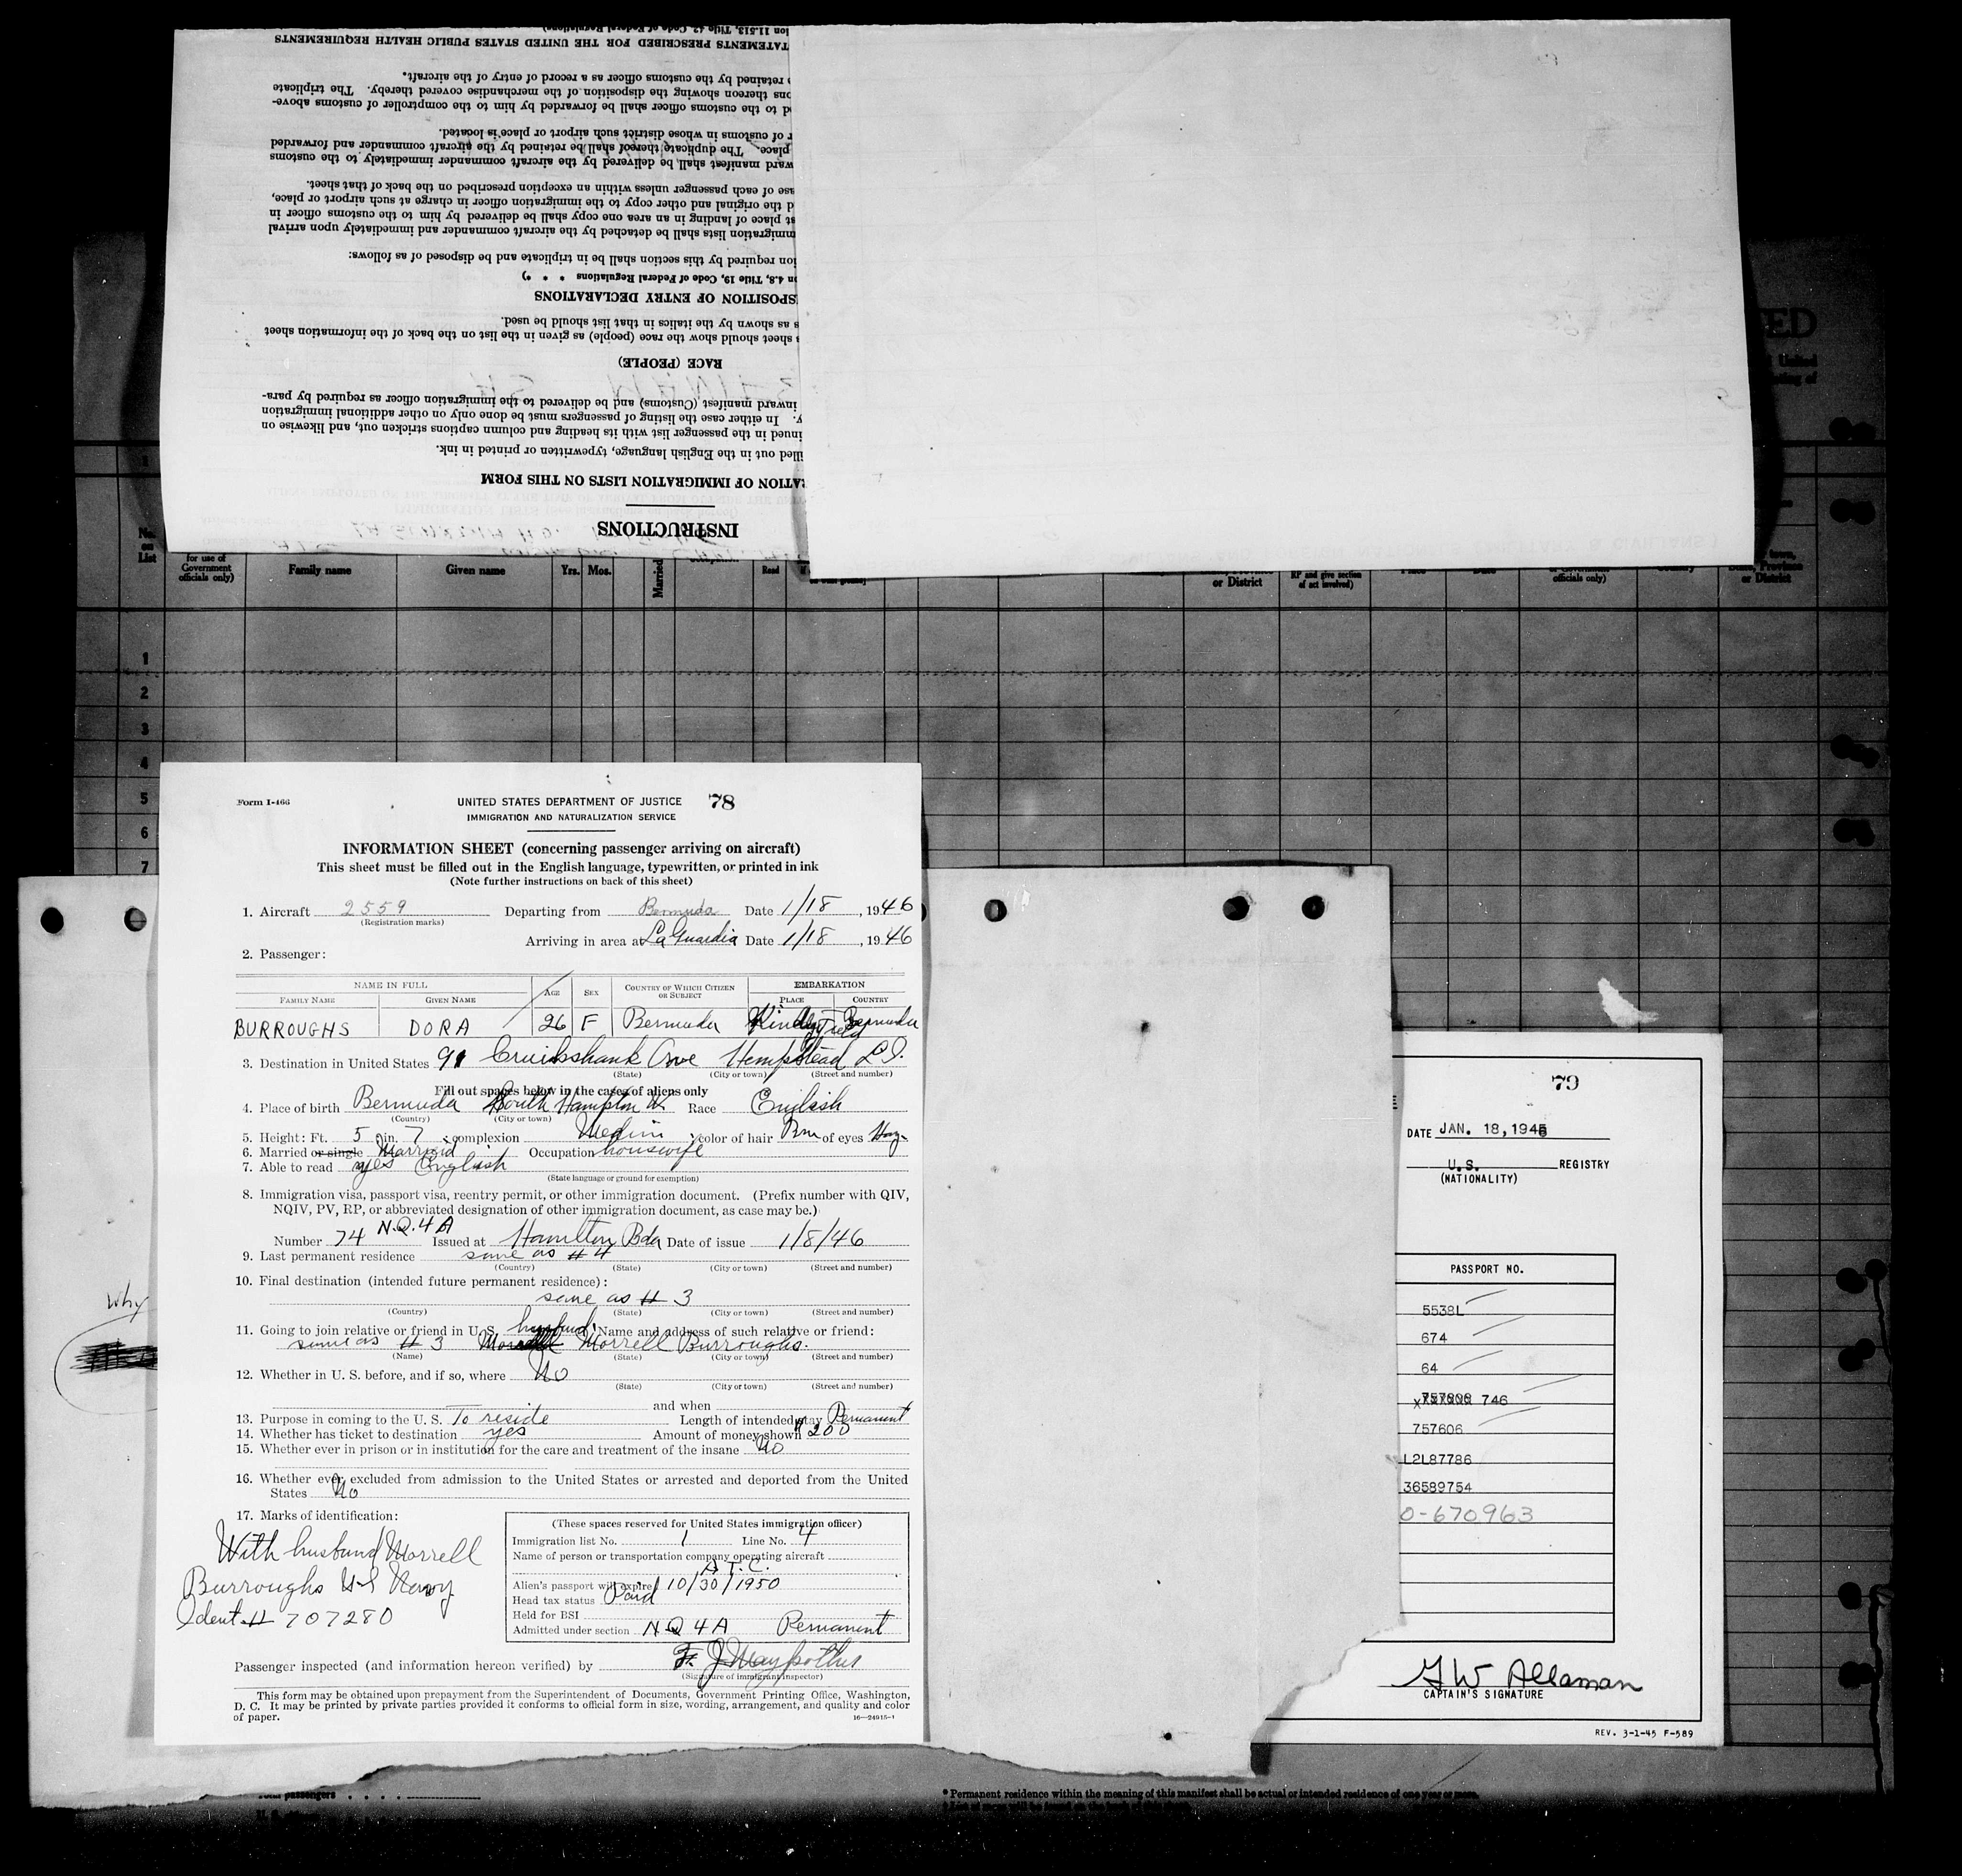 INSTRUCTIONS
RATION OF IMMIGRATION LISTS ON THIS FORM
illed out in the English language, typewritten or printed in ink.
inued in the passenger list with its heading and column captions stricken out, and likewise on
y. In either case the listing of passengers must be done only on other additional immigration
inward manifest (Customs) and be delivered to the immigration officer as required by para-
RACE (PEOPLE)
s sheet should show the race (people) as given in the list on the back of the information sheet
s as shown by the italics in that list should be used.
SPOSITION OF ENTRY DECLARATIONS
on 4.8, Title 19, Code of Federal Regulations * * *)
ion required by this section shall be in triplicate and be disposed of as follows:
mmigration lists shall be detached by the aircraft commander and immediately upon arrival
st place of landing in an area one copy shall be delivered by him to the customs officer in
d the original and other copy to the immigration officer in charge at such airport or place,
ase of each passenger unless within an exception prescribed on the back of that sheet.
ward manifest shall be delivered by the aircraft commander immediately to the customs
place. The duplicate thereof shall be retained by the aircraft commander and forwarded
r of customs in whose district such airport or place is located.
d to the customs officer shall be forwarded by him to the comptroller of customs above-
ons thereon showing the disposition of the merchandise covered thereby. The triplicate
retained by the customs officer as a record of entry of the aircraft.
STATEMENTS PRESCRIBED FOR THE UNITED STATES PUBLIC HEALTH REQUIREMENTS
ion 11.513, Title 42, Code of Federal Regulations)
No. on List
for use of Government officials only)
Family name
Given name
Yrs. Mos.
Married
Read
or District
RP and give section of act involved)
officials only)
or District
1
2
3
4
5
6
7
Form I-466
UNITED STATES DEPARTMENT OF JUSTICE 78
IMMIGRATION AND NATURALIZATION SERVICE
INFORMATION SHEET (concerning passenger arriving on aircraft)
This sheet must be filled out in the English language, typewritten, or printed in ink
(Note further instructions on back of this sheet)
1. Aircraft 2559 Departing from Bermuda Date 1/18, 1946
(Registration marks)
Arriving in area at La Guardia Date 1/18, 1946
2. Passenger:
NAME IN FULL AGE SEX COUNTRY OF WHICH CITIZEN OR SUBJECT EMBARKATION
FAMILY NAME GIVEN NAME PLACE COUNTRY
BURROUGHS DORA 26 F Bermuda Kindley Field Bermuda
3. Destination in United States 91 Cruikshank Ave Hempstead L.I.
(State) (City or town) (Street and number)
Fill out spaces below in the cases of aliens only
4. Place of birth Bermuda South Hampton W. Race English
(Country) (City or town)
5. Height: Ft. 5 in. 7; complexion Medium; color of hair Brn of eyes Haz-
6. Married or single Married Occupation housewife
7. Able to read yes English
(State language or ground for exemption)
8. Immigration visa, passport visa, reentry permit, or other immigration document. (Prefix number with QIV,
NQIV, PV, RP, or abbreviated designation of other immigration document, as case may be.)
N.Q.4A
Number 74 Issued at Hamilton Bda Date of issue 1/8/46
9. Last permanent residence same as # 4
(Country) (State) (City or town) (Street and number)
10. Final destination (intended future permanent residence):
same as # 3
(Country) (State) (City or town) (Street and number)
11. Going to join relative or friend in U.S. husband. Name and address of such relative or friend:
same as # 3 Morrell Burroughs.
(Name) (State) (City or town) (Street and number)
12. Whether in U. S. before, and if so, where No
(State) (City or town) (Street and number)
and when
13. Purpose in coming to the U. S. To reside Length of intended stay Permanent
14. Whether has ticket to destination yes Amount of money shown $200
15. Whether ever in prison or in institution for the care and treatment of the insane No
16. Whether ever excluded from admission to the United States or arrested and deported from the United
States No
17. Marks of identification:
With husband Morrell
Burroughs U.S Navy
Ident # 707280
(These spaces reserved for United States immigration officer)
Immigration list No. 1 Line No. 4
Name of person or transportation company operating aircraft
A.T.C.
Alien's passport will expire 10/30/1950
Head tax status Paid
Held for BSI
Admitted under section NQ4A Permanent
Passenger inspected (and information hereon verified) by F. J.
(Signature of immigrant inspector)
This form may be obtained upon prepayment from the Superintendent of Documents, Government Printing Office, Washington,
D. C. It may be printed by private parties provided it conforms to official form in size, wording, arrangement, and quality and color
of paper.
16—24915-1
Why
79
DATE JAN. 18, 1946
U.S. REGISTRY
(NATIONALITY)
PASSPORT NO.
5538L
674
64
746
757606
L2L87786
36589754
O-670963
G W Allaman
CAPTAIN'S SIGNATURE
REV. 3-1-45 F-589
Total passengers
* Permanent residence within the meaning of this manifest shall be actual or intended residence of one year or more.